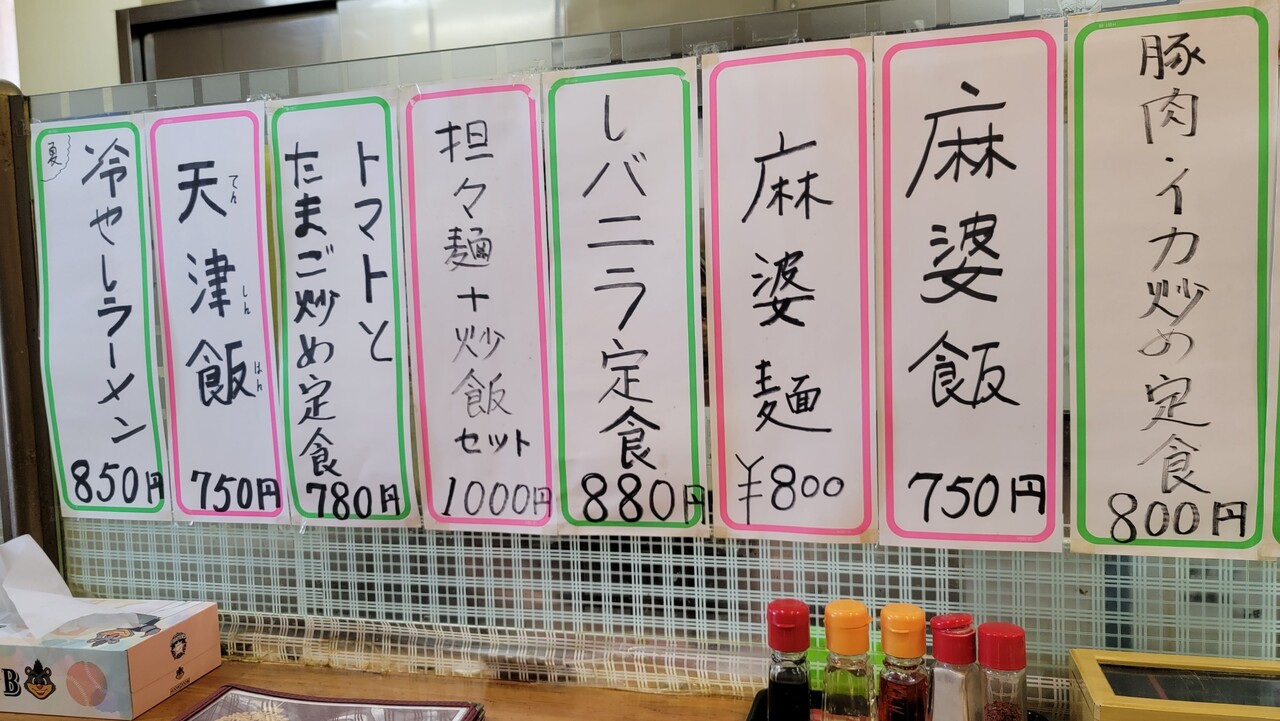 豚肉・イカ炒め定食
800円
麻婆飯
750円
麻婆麺
¥800
レバニラ定食
880円
担々麺+炒飯
セット
1000円
トマトと
たまご炒め定食
780円
天津飯
てんしんはん
750円
夏
冷やしラーメン
850円
B